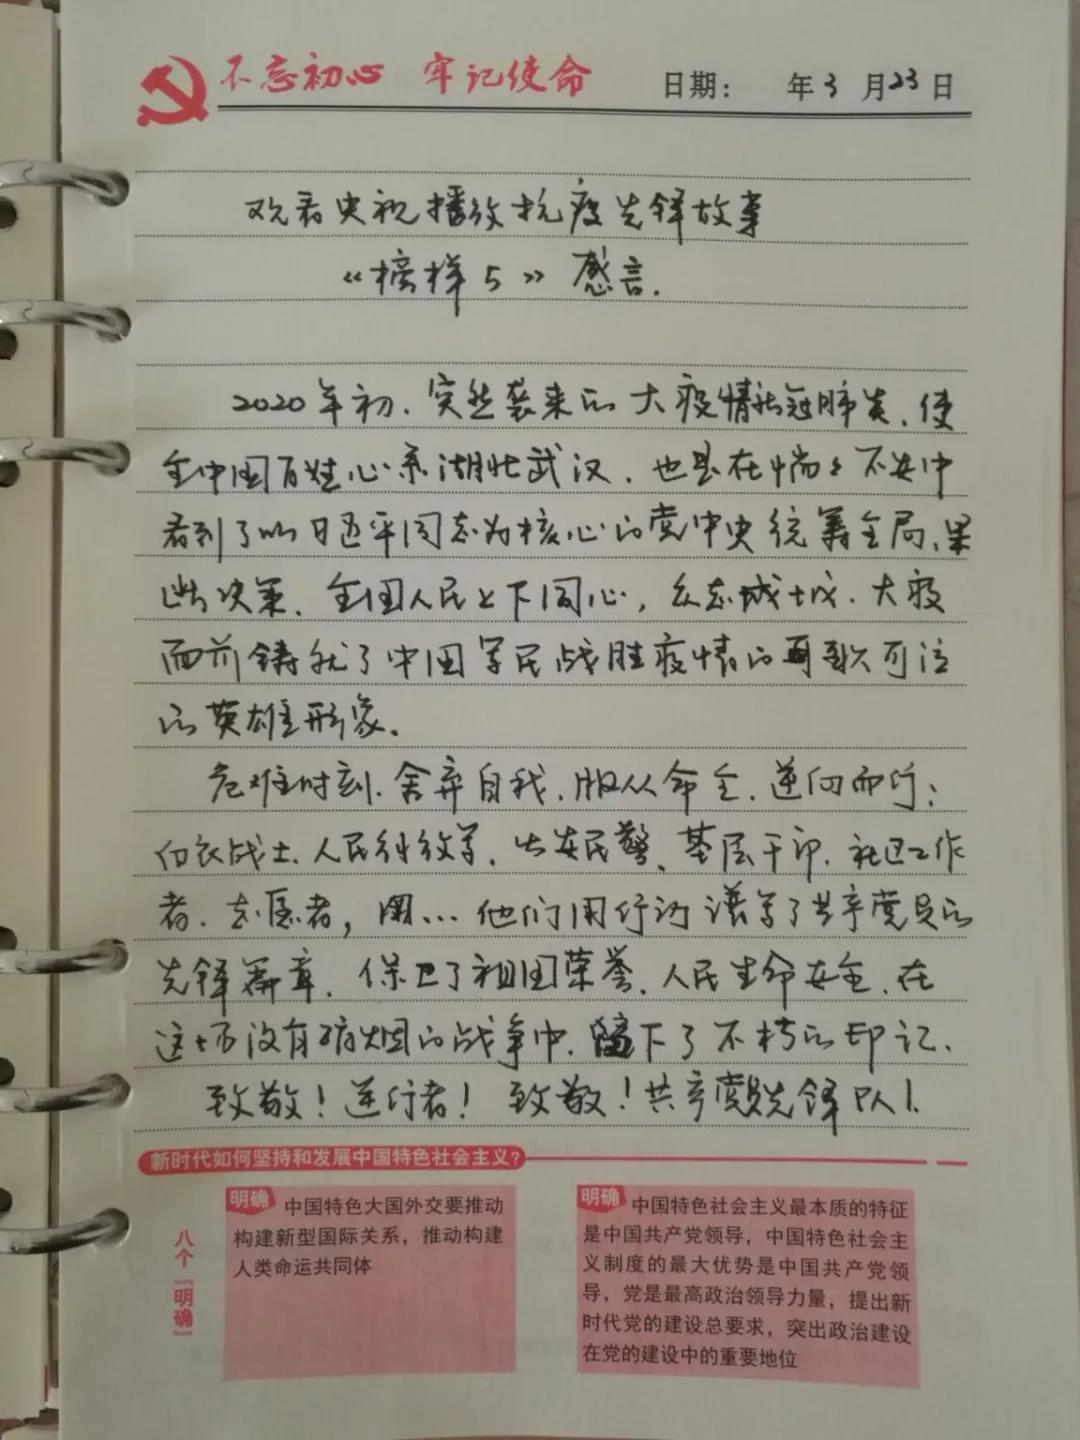 不忘初心 牢记使命 日期： 年3月23日
观看央视播放抗疫先锋故事
《榜样5》感言.
2020年初、突然袭来的大疫情新冠肺炎、使
全中国百姓心系湖北武汉、也是在惴々不安中
看到了以习近平同志为核心的党中央统筹全局、果
断决策、全国人民上下同心，众志成城、大疫
面前铸就了中国军民战胜疫情的可歌可泣
的英雄形象。
危难时刻、舍弃自我、服从命令、逆向而行；
白衣战士、人民解放军、公安民警、基层干部、社区工作
者、志愿者，… 他们用行动谱写了共产党员的
先锋篇章、保卫了祖国荣誉、人民生命安全、在
这场没有硝烟的战争中、留下了不朽的印记、
致敬！逆行者！致敬！共产党员先锋队！
新时代如何坚持和发展中国特色社会主义？
八个“明确”
明确 中国特色大国外交要推动
构建新型国际关系，推动构建
人类命运共同体
明确 中国特色社会主义最本质的特征
是中国共产党领导，中国特色社会主
义制度的最大优势是中国共产党领
导，党是最高政治领导力量，提出新
时代党的建设总要求，突出政治建设
在党的建设中的重要地位